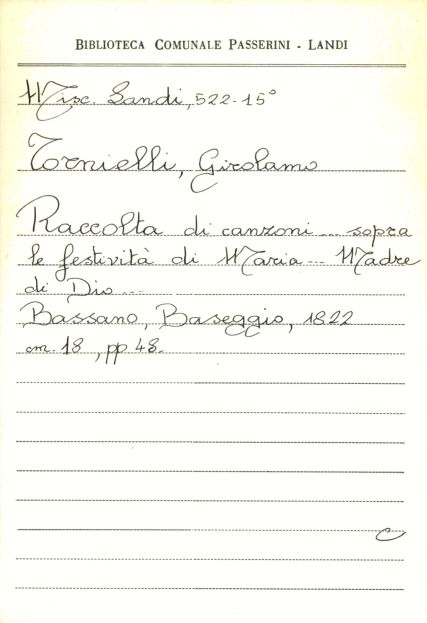 BIBLIOTECA COMUNALE PASSERINI - LANDI
Misc. Landi, 522-15°
Tornielli, Girolamo
Raccolta di canzoni ... sopra
le festività di Maria ... Madre
di Dio ...
Bassano, Baseggio, 1822
cm. 18, pp 48.
C